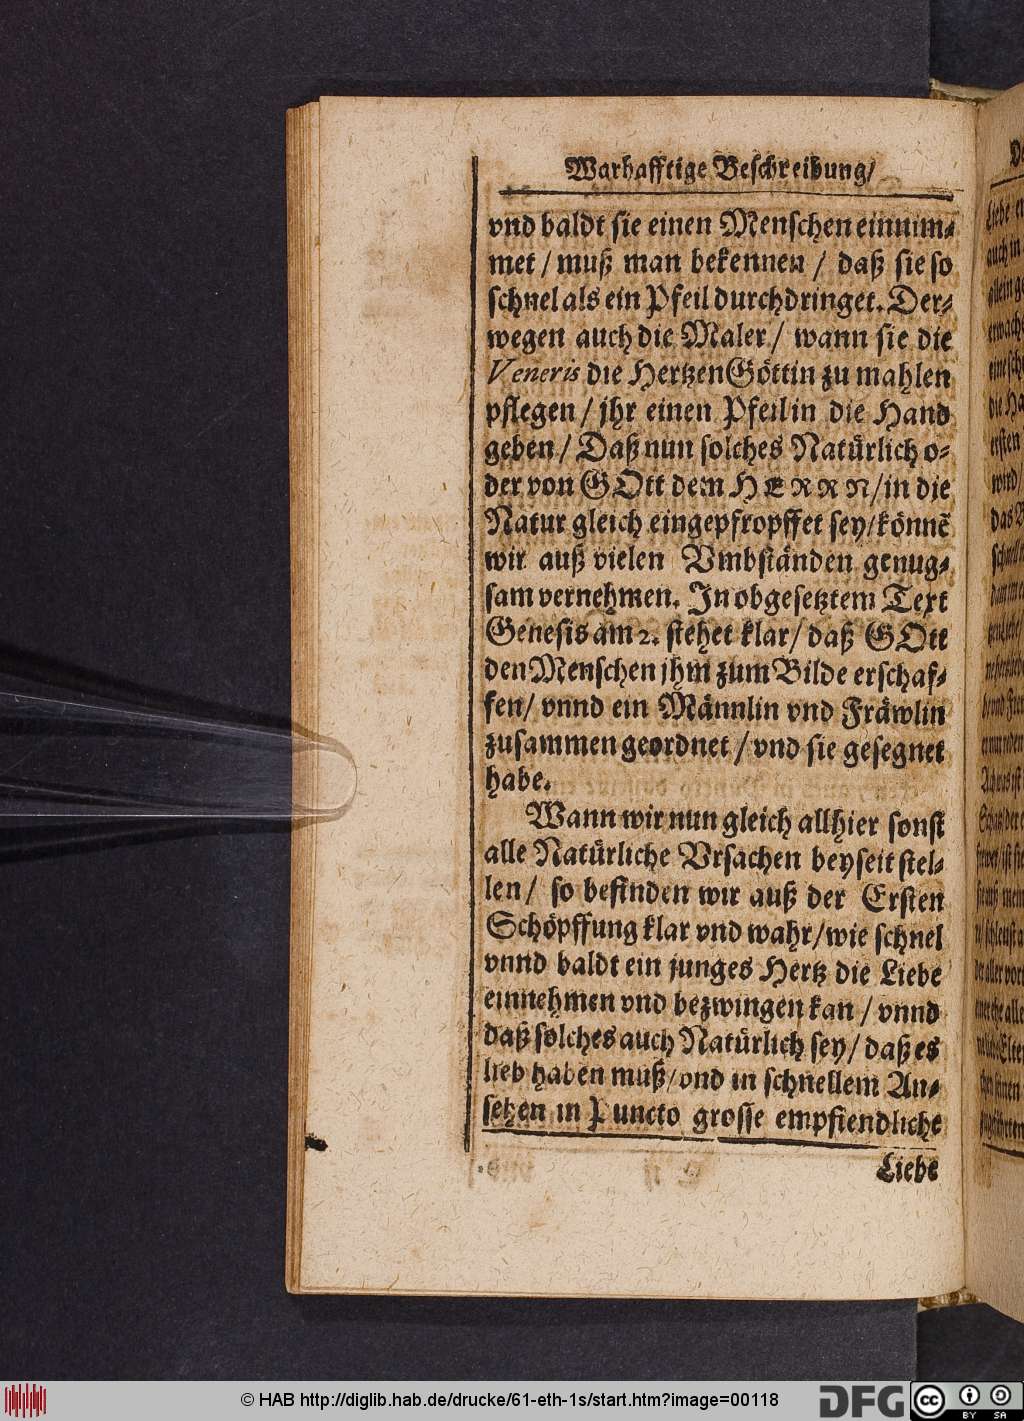 Warhafftige Beschreibung/
vnd baldt sie einen Menschen einnim-
met / muß man bekennen / daß sie so
schnel als ein Pfeil durchdringet. Der-
wegen auch die Maler / wann sie die
Veneris die HertzenGöttin zu mahlen
pflegen / jhr einen Pfeil in die Hand
geben / Daß nun solches Natürlich o-
der von GOtt dem HERRN/in die
Natur gleich eingepfropffet sey/könnẽ
wir auß vielen Vmbständen genug-
sam vernehmen. In obgesetztem Text
Genesis am 2. stehet klar/ daß GOtt
den Menschen jhm zum Bilde erschaf-
fen/ vnnd ein Männlin vnd Fräwlin
zusammen geordnet / vnd sie gesegnet
habe.
Wann wir nun gleich allhier sonst
alle Natürliche Vrsachen beyseit stel-
len / so befinden wir auß der Ersten
Schöpffung klar vnd wahr/wie schnel
vnnd baldt ein junges Hertz die Liebe
einnehmen vnd bezwingen kan / vnnd
daß solches auch Natürlich sey/ daß es
lieb haben muß/vnd in schnellem An-
sehen in Puncto grosse empfiendliche
Liebe
© HAB http://diglib.hab.de/drucke/61-eth-1s/start.htm?image=00118
DFG
cc BY SA